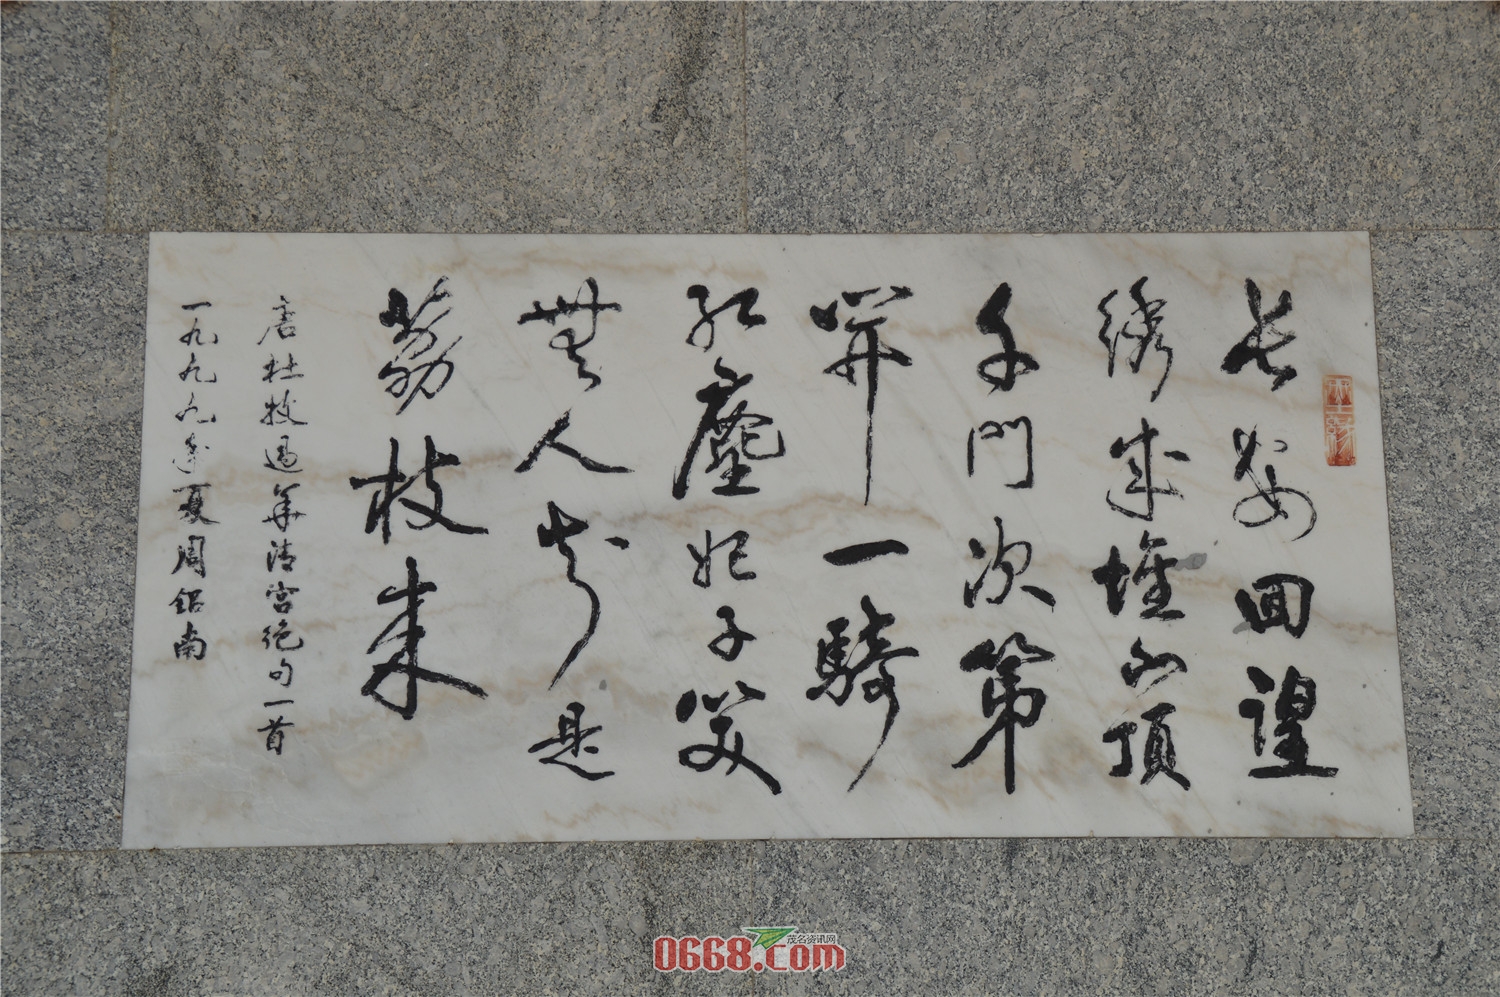 长安回望
绣成堆山顶
千門次第
開一騎
红塵妃子笑
無人知是
荔枝来
唐杜牧過华清宫绝句一首
一九九九年夏周绍南
0668.com
茂名资讯网